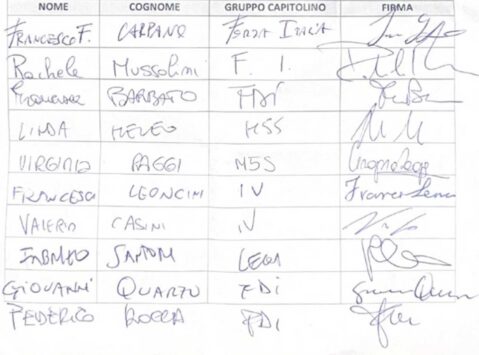 NOME COGNOME GRUPPO CAPITOLINO FIRMA
FRANCESCO F. CARPANO FORZA ITALIA
Rachele MUSSOLINI F. I.
Francesca BARBATO FDI
LINDA MELEO M5S
VIRGINIA RAGGI M5S Virginia Raggi
FRANCESCA LEONCINI IV
VALERIO CASINI IV
SANTORI LEGA
GIOVANNI QUARZO FDI
FEDERICO ROCCA FDI